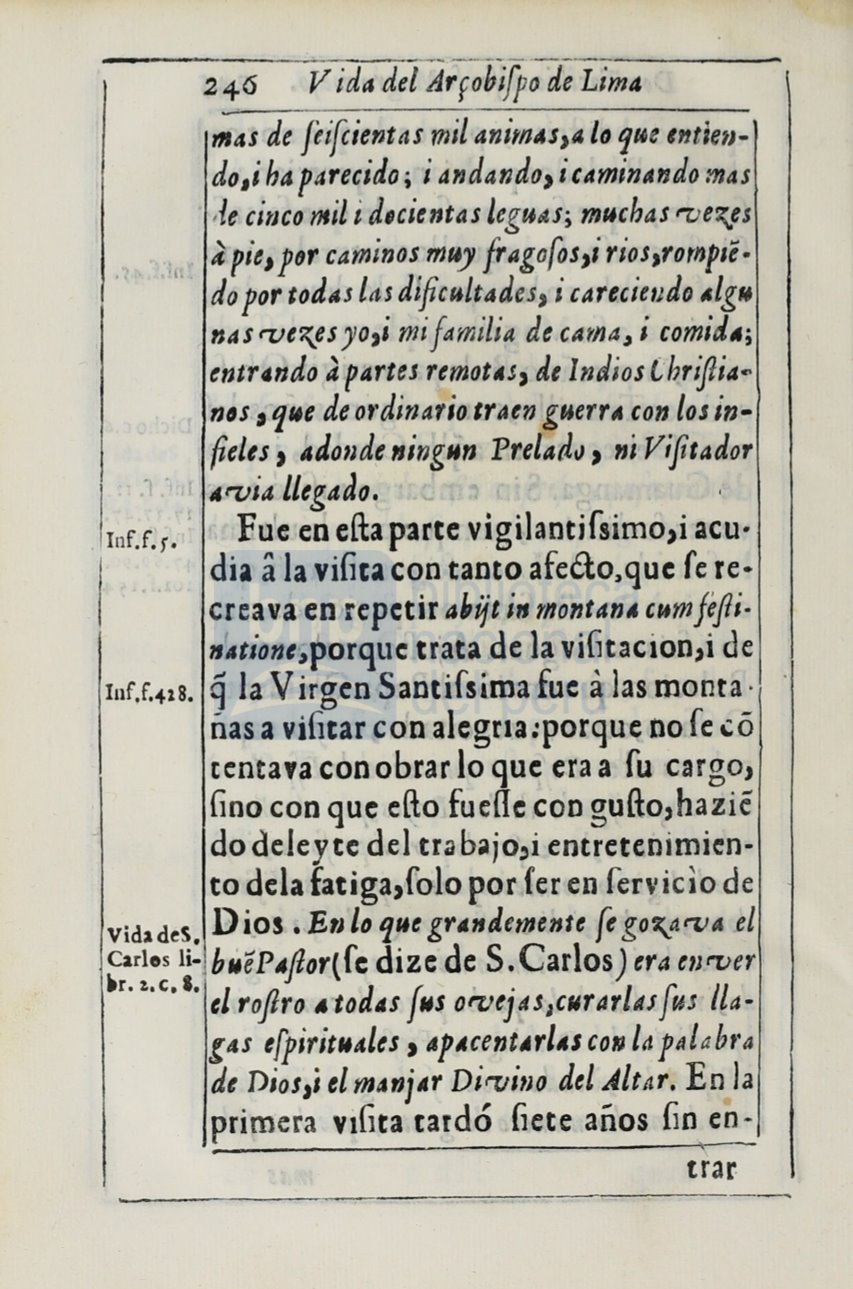 246 Vida del Arçobiſpo de Lima
mas de ſeiſcientas mil animas,a lo que entien-
do,i ha parecido; i andando, i caminando mas
de cinco mil i docientas leguas; muchas vezes
à pie, por caminos muy fragoſos,i rios,rompiẽ-
do por todas las dificultades, i careciendo algu
nas vezes yo,i mi familia de cama, i comida;
entrando à partes remotas, de Indios Chriſtia-
nos , que de ordinario traen guerra con los in-
fieles , adonde ningun Prelado , ni Viſitador
avia llegado.
Inf.f.5.
Fue en eſta parte vigilantiſsimo,i acu-
dia â la viſita con tanto afecto,que ſe re-
creava en repetir abijt in montana cum feſti-
natione,porque trata de la viſitacion,i de
Inf.f.428.
q̃ la Virgen Santiſsima fue à las monta-
ñas a viſitar con alegria:porque no ſe cõ
tentava con obrar lo que era a ſu cargo,
ſino con que eſto fueſſe con guſto,haziẽ
do deleyte del trabajo,i entretenimien-
to dela fatiga,ſolo por ſer en ſervicio de
Vida de S.
Carlos li-
br. 2.c.8.
Dios . En lo que grandemente ſe gozava el
buẽ Paſtor(ſe dize de S.Carlos) era en ver
el roſtro a todas ſus ovejas,curarlas ſus lla-
gas eſpirituales , apacentarlas con la palabra
de Dios,i el manjar Divino del Altar. En la
primera viſita tardó ſiete años ſin en-
trar